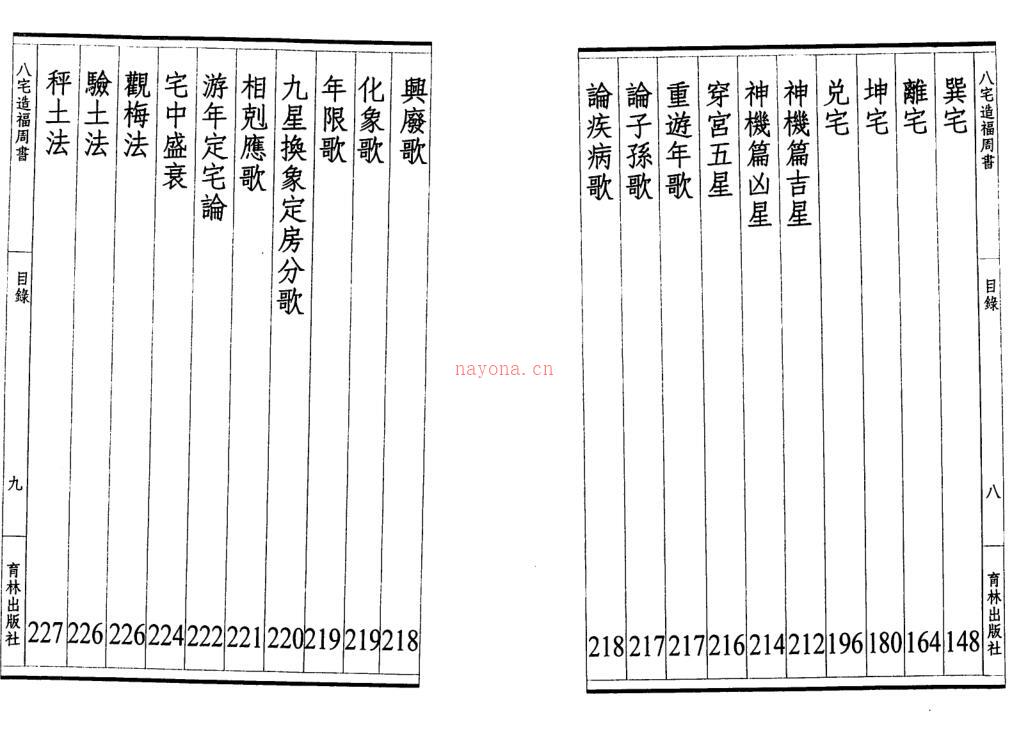 八宅造福周書
目錄
八
育林出版社
巽宅 148
離宅 164
坤宅 180
兑宅 196
神機篇吉星 212
神機篇凶星 214
穿宮五星 216
重遊年歌 217
論子孫歌 217
論疾病歌 218
興廢歌 218
化象歌 219
年限歌 219
九星換象定房分歌 220
相剋應歌 221
游年定宅論 222
宅中盛衰 224
觀梅法 226
驗土法 226
秤土法 227
八宅造福周書
目錄
九
育林出版社
nayona.cn